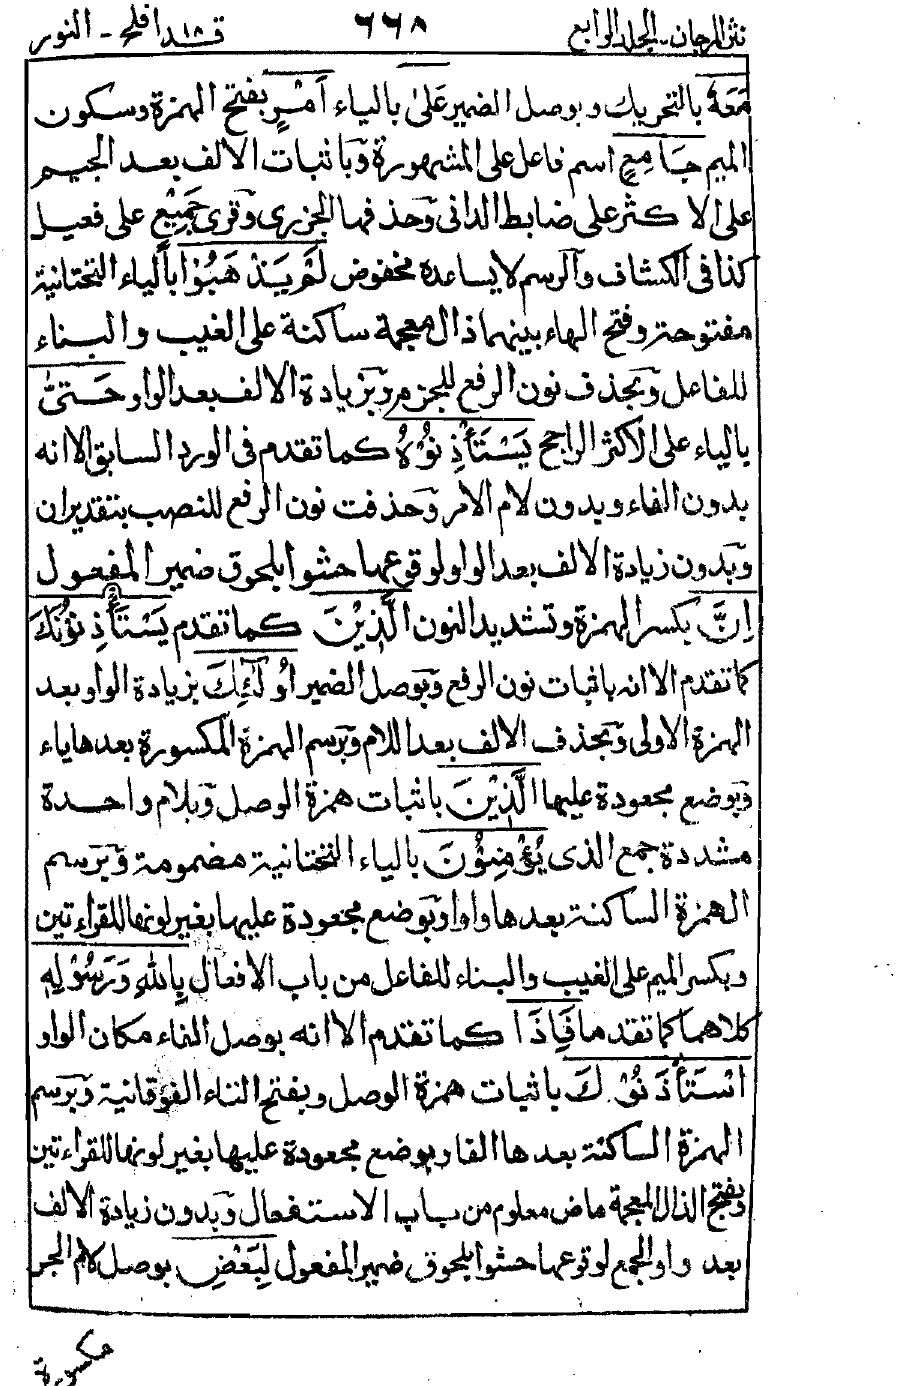 نثر المرجان - الجلد الرابع ٦٦٨ قد افلح ١٨ - النور
مَعَهٗ بالتحريك وبوصل الضمير عَلٰى بالياء اَمْرٍ بفتح الهمزة وسكون
الميم جَامِعٍ اسم فاعل على المشهورة وَباثبات الالف بعد الجيم
على الاكثر على ضابط الدانى وَحذفها الجزرى وَقرى جَمِيْعٍ على فعيل
كذا فى الكشاف وَالرسم لا يساعده مخفوض لَّمْ يَذْهَبُوْا بالياء التحتانية
مفتوحة وفتح الهاء بينهما ذال معجمة ساكنة على الغيب والبناء
للفاعل وَبحذف نون الرفع للجزم وَبزيادة الالف بعد الواو حَتّٰى
بالياء على الاكثر الراجح يَسْتَأْذِنُوْهُ كما تقدم فى الورد السابق الا انه
بدون الفاء وبدون لام الامر وَحذفت نون الرفع للنصب بتقدير ان
وَبدون زيادة الالف بعد الواو لوقوعها حشوا بلحوق ضمير المفعول
اِنَّ بكسر الهمزة وتشديد النون الَّذِيْنَ كما تقدم يَسْتَأْذِنُوْنَكَ
كما تقدم الا انه باثبات نون الرفع وَبوصل الضمير اُولٰٓئِكَ بزيادة الواو بعد
الهمزة الاولى وَبحذف الالف بعد اللام وَبرسم الهمزة المكسورة بعدها ياء
وَبوضع مجعودة عليها الَّذِيْنَ باثبات همزة الوصل وَبلام واحدة
مشددة جمع الذى يُؤْمِنُوْنَ بالياء التحتانية مضمومة وَبرسم
الهمزة الساكنة بعدها واوا وَبوضع مجعودة عليها بغير لونها للقراءتين
وبكسر الميم على الغيب والبناء للفاعل من باب الافعال بِاللّٰهِ وَرَسُوْلِهٖ
كلاهما كما تقدما فَاِذَا كما تقدم الا انه بوصل الفاء مكان الواو
اسْتَأْذَنُوْكَ باثبات همزة الوصل وبفتح التاء الفوقانية وَبرسم
الهمزة الساكنة بعدها الفا وبوضع مجعودة عليها بغير لونها للقراءتين
وَبفتح الذال المعجمة ماض معلوم من باب الاستفعال وَبدون زيادة الالف
بعد واو الجمع لوقوعها حشوا بلحوق ضمير المفعول لِبَعْضِ بوصل لام الجر
مكسورة